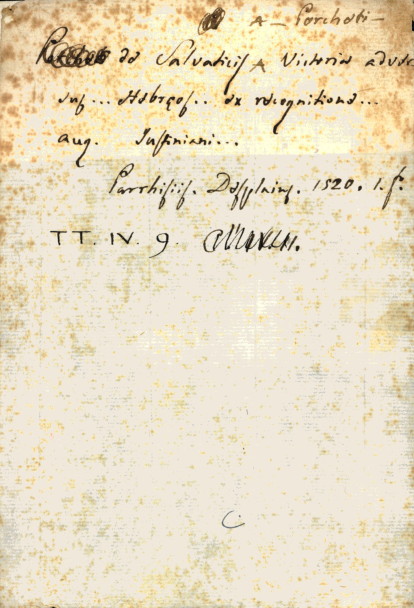 A — Porcheti —
de Salvaticis A Victoria advers
sus ... Hebreos .. ex recognitione ...
aug. Justiniani ...
Parrhisiis. Desplains. 1520. 1. f.
TT. IV. 9.